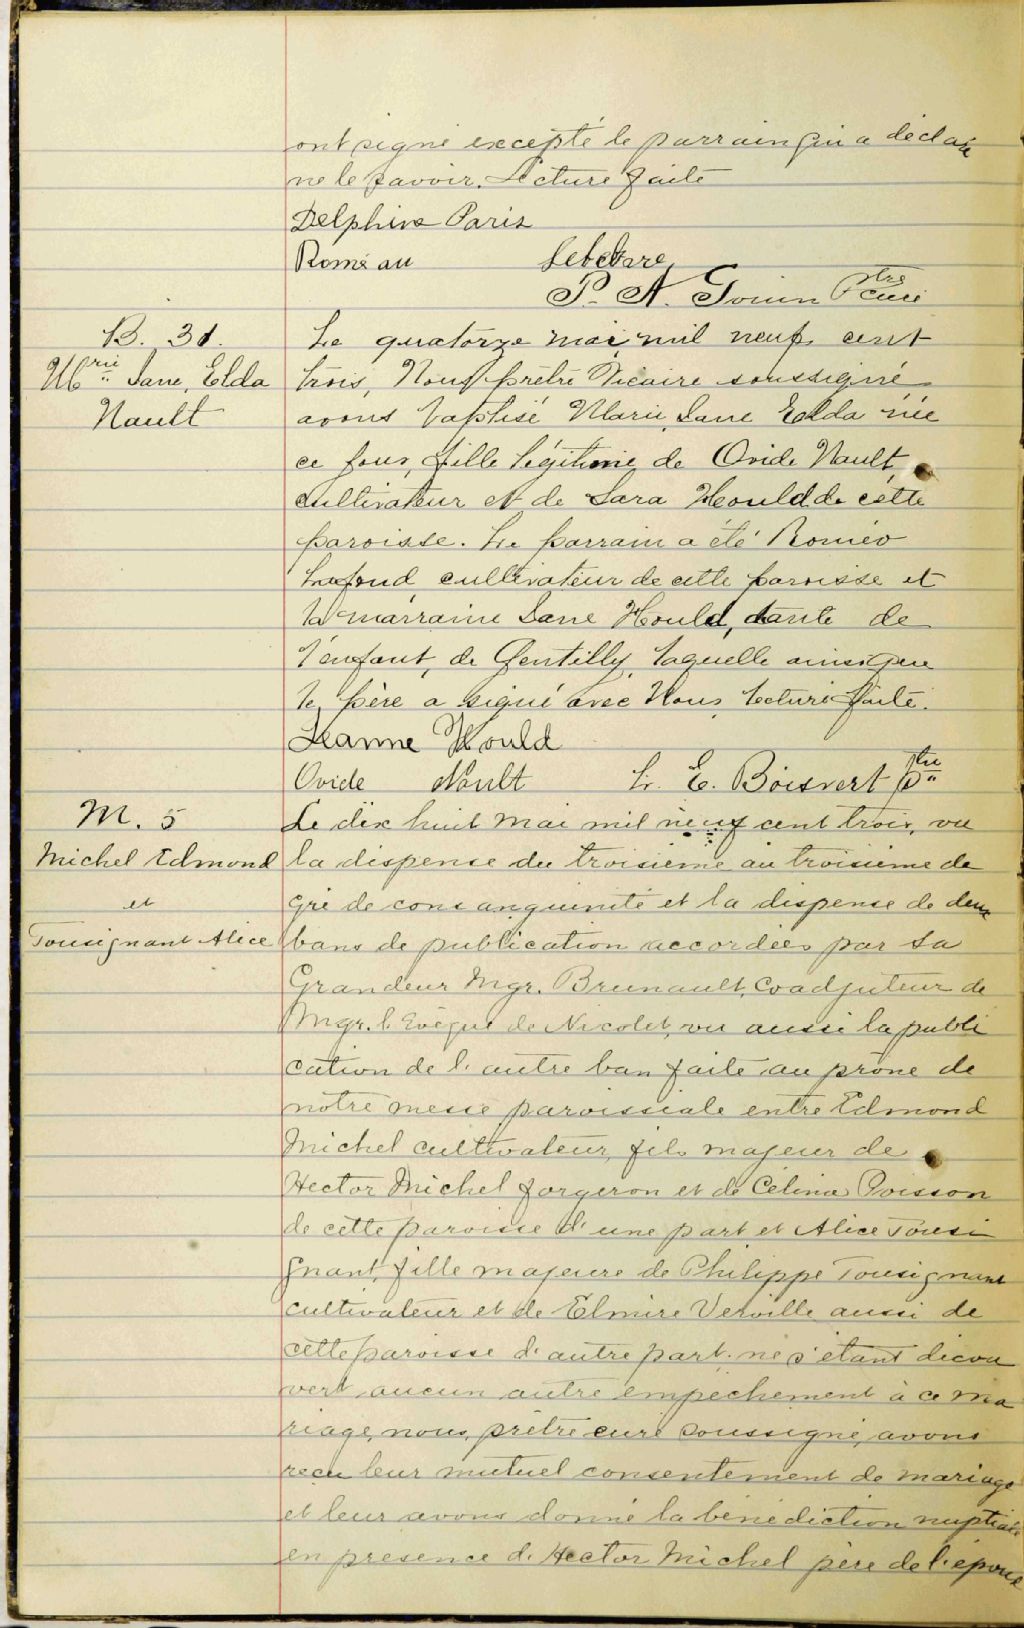 ont signé excepté le parrain qui a déclaré
ne le savoir. Lecture faite
Delphine Paris
Roméau Lebebvre
P. A. Gouin Ptre curé
B. 31.
Mrie Jane, Elda
Nault
Le quatorze mai, mil neuf cent
trois, Nous prêtre Vicaire soussigné
avons baptisé Marie, Jane Elda née
ce jour, fille légitime de Ovide Nault,
cultivateur et de Sara Hould de cette
paroisse. Le parrain a été Roméo
Lafond, cultivateur de cette paroisse et
la marraine Jane Hould, tante de
l'enfant, de Gentilly, laquelle ainsi que
le père a signé avec Nous, lecture faite.
Jeanne Hould
Ovide Nault L. E. Boisvert Ptre
M. 5
Michel Edmond
et
Tousignant Alice
Le dix huit Mai mil neuf cent trois, vu
la dispense du troisième au troisième de
gré de consanguinité et la dispense de deux
bans de publication accordées par Sa
Grandeur Mgr. Brunault, Coadjuteur de
Mgr. l'Evêque de Nicolet, vu aussi la publi
cation de l'autre ban faite au prône de
notre messe paroissiale entre Edmond
Michel cultivateur, fils majeur de
Hector Michel forgeron et de Célina Poisson
de cette paroisse d'une part et Alice Tousi
gnant, fille majeure de Philippe Tousignant
cultivateur et de Elmire Verville aussi de
cette paroisse d'autre part; ne s'étant décou
vert aucun autre empêchement à ce ma
riage, nous, prêtre curé soussigné, avons
reçu leur mutuel consentement de mariage
et leur avons donné la bénédiction nuptiale
en présence d. Hector Michel père de l'époux